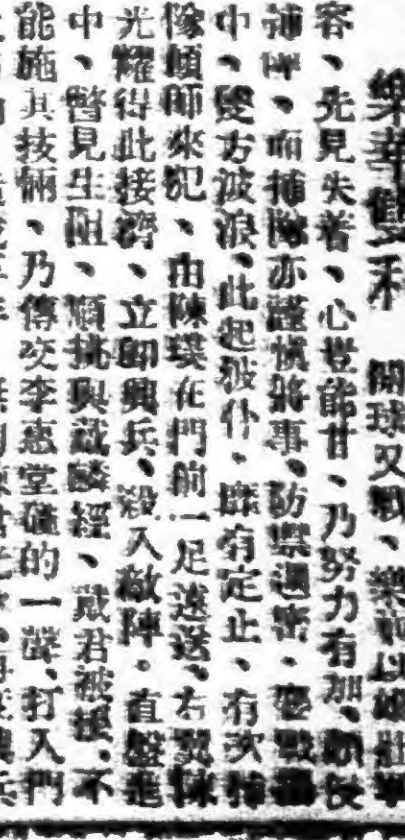 樂華雙利 開球又戰、樂軍以雄壯軍
容、先見失着、心豈能甘、乃努力有加、頻侵
補陣、而捕隊亦謹慎將事、防禦週密、鏖戰
中、雙方波浪、此起彼仆、靡有定止、有次捕
隊傾師來犯、由陳璞在門前一足遠送、右翼陳
光耀得此接濟、立即興兵、殺入敵陣、直盤進
中、瞥見生阻、順挑與戴麟經、戴君被擾、不
能施其技倆、乃傳交李惠堂確的一聲、打入門